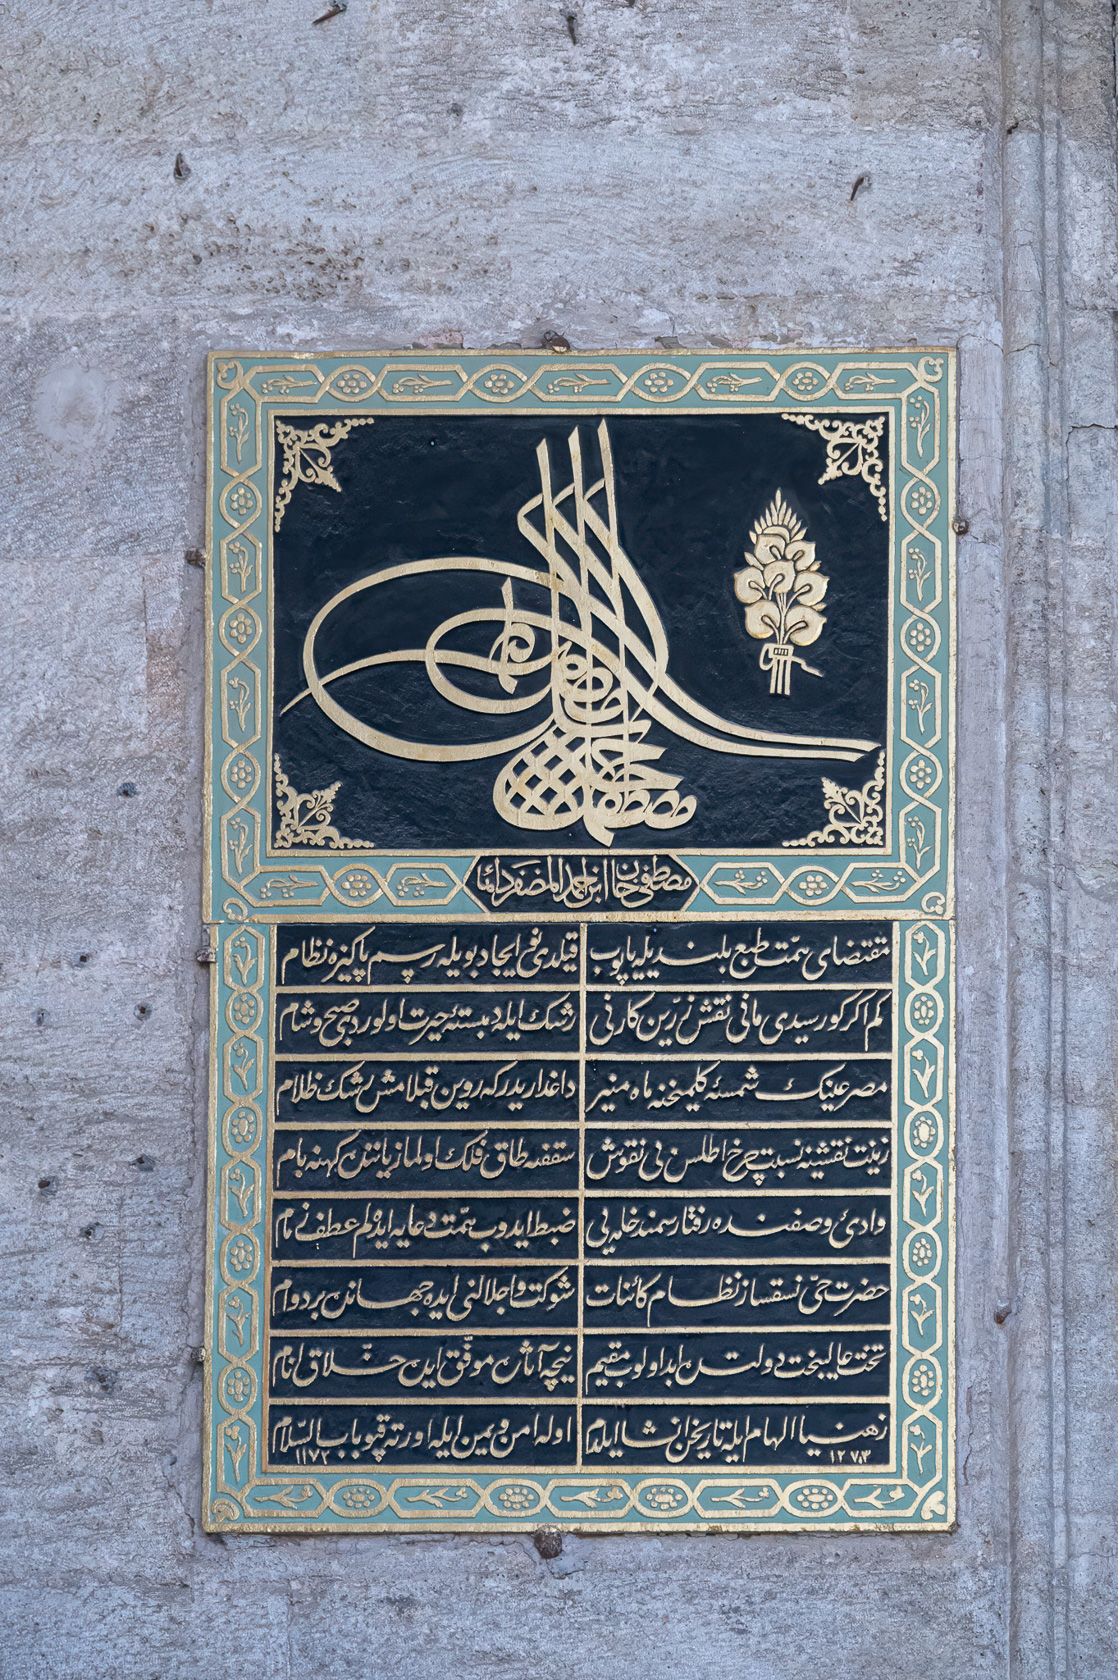 مصطفى خان ابن احمد المظفر دائما
مقتضای همّت طبع بلندیله یاپوب
قیلدی نقی ایجاد بویله رسم پاکیزه نظام
کم اکر کورسیدی مانی نقش زرّین کارنی
رشک ایله دمبستهٔ حیرت اولوردی صبح و شام
مصرعینک شمسهٔ کلمیخنه ماه منیر
داغداریدر که روین قبلامش رشک ظلام
زینت نقشینه نسبت چرخ اطلس بی نقوش
سقفنه طاق فلک اولماز یاننده کهنه بام
وادئ وصفنده رفتار سمند خامه یی
ضبط ایدوب همّت دعایه ایده لم عطف زمام
حضرت حیّ نسقساز نظام کائنات
شوکت و اجلالنی ایده جهانده بر دوام
تخت عالیبخت دولتده ابد اولوب مقیم
نیچه آثاره موفّق ایده خلّاق انام
ذهنیا الهام ایله تاریخن انشا ایلدم
اوله امن و یمن ایله اورته قپو باب السّلام
١١٧٢